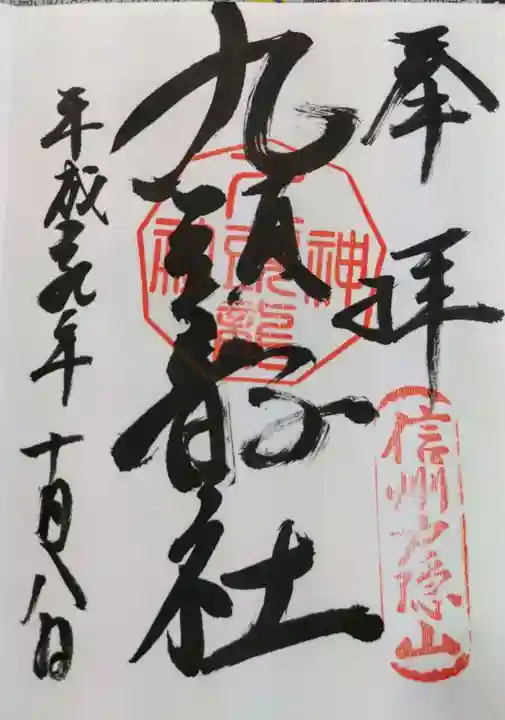 奉拝
信州戸隠山
九頭龍社
九頭龍神社
平成二十九年十月八日